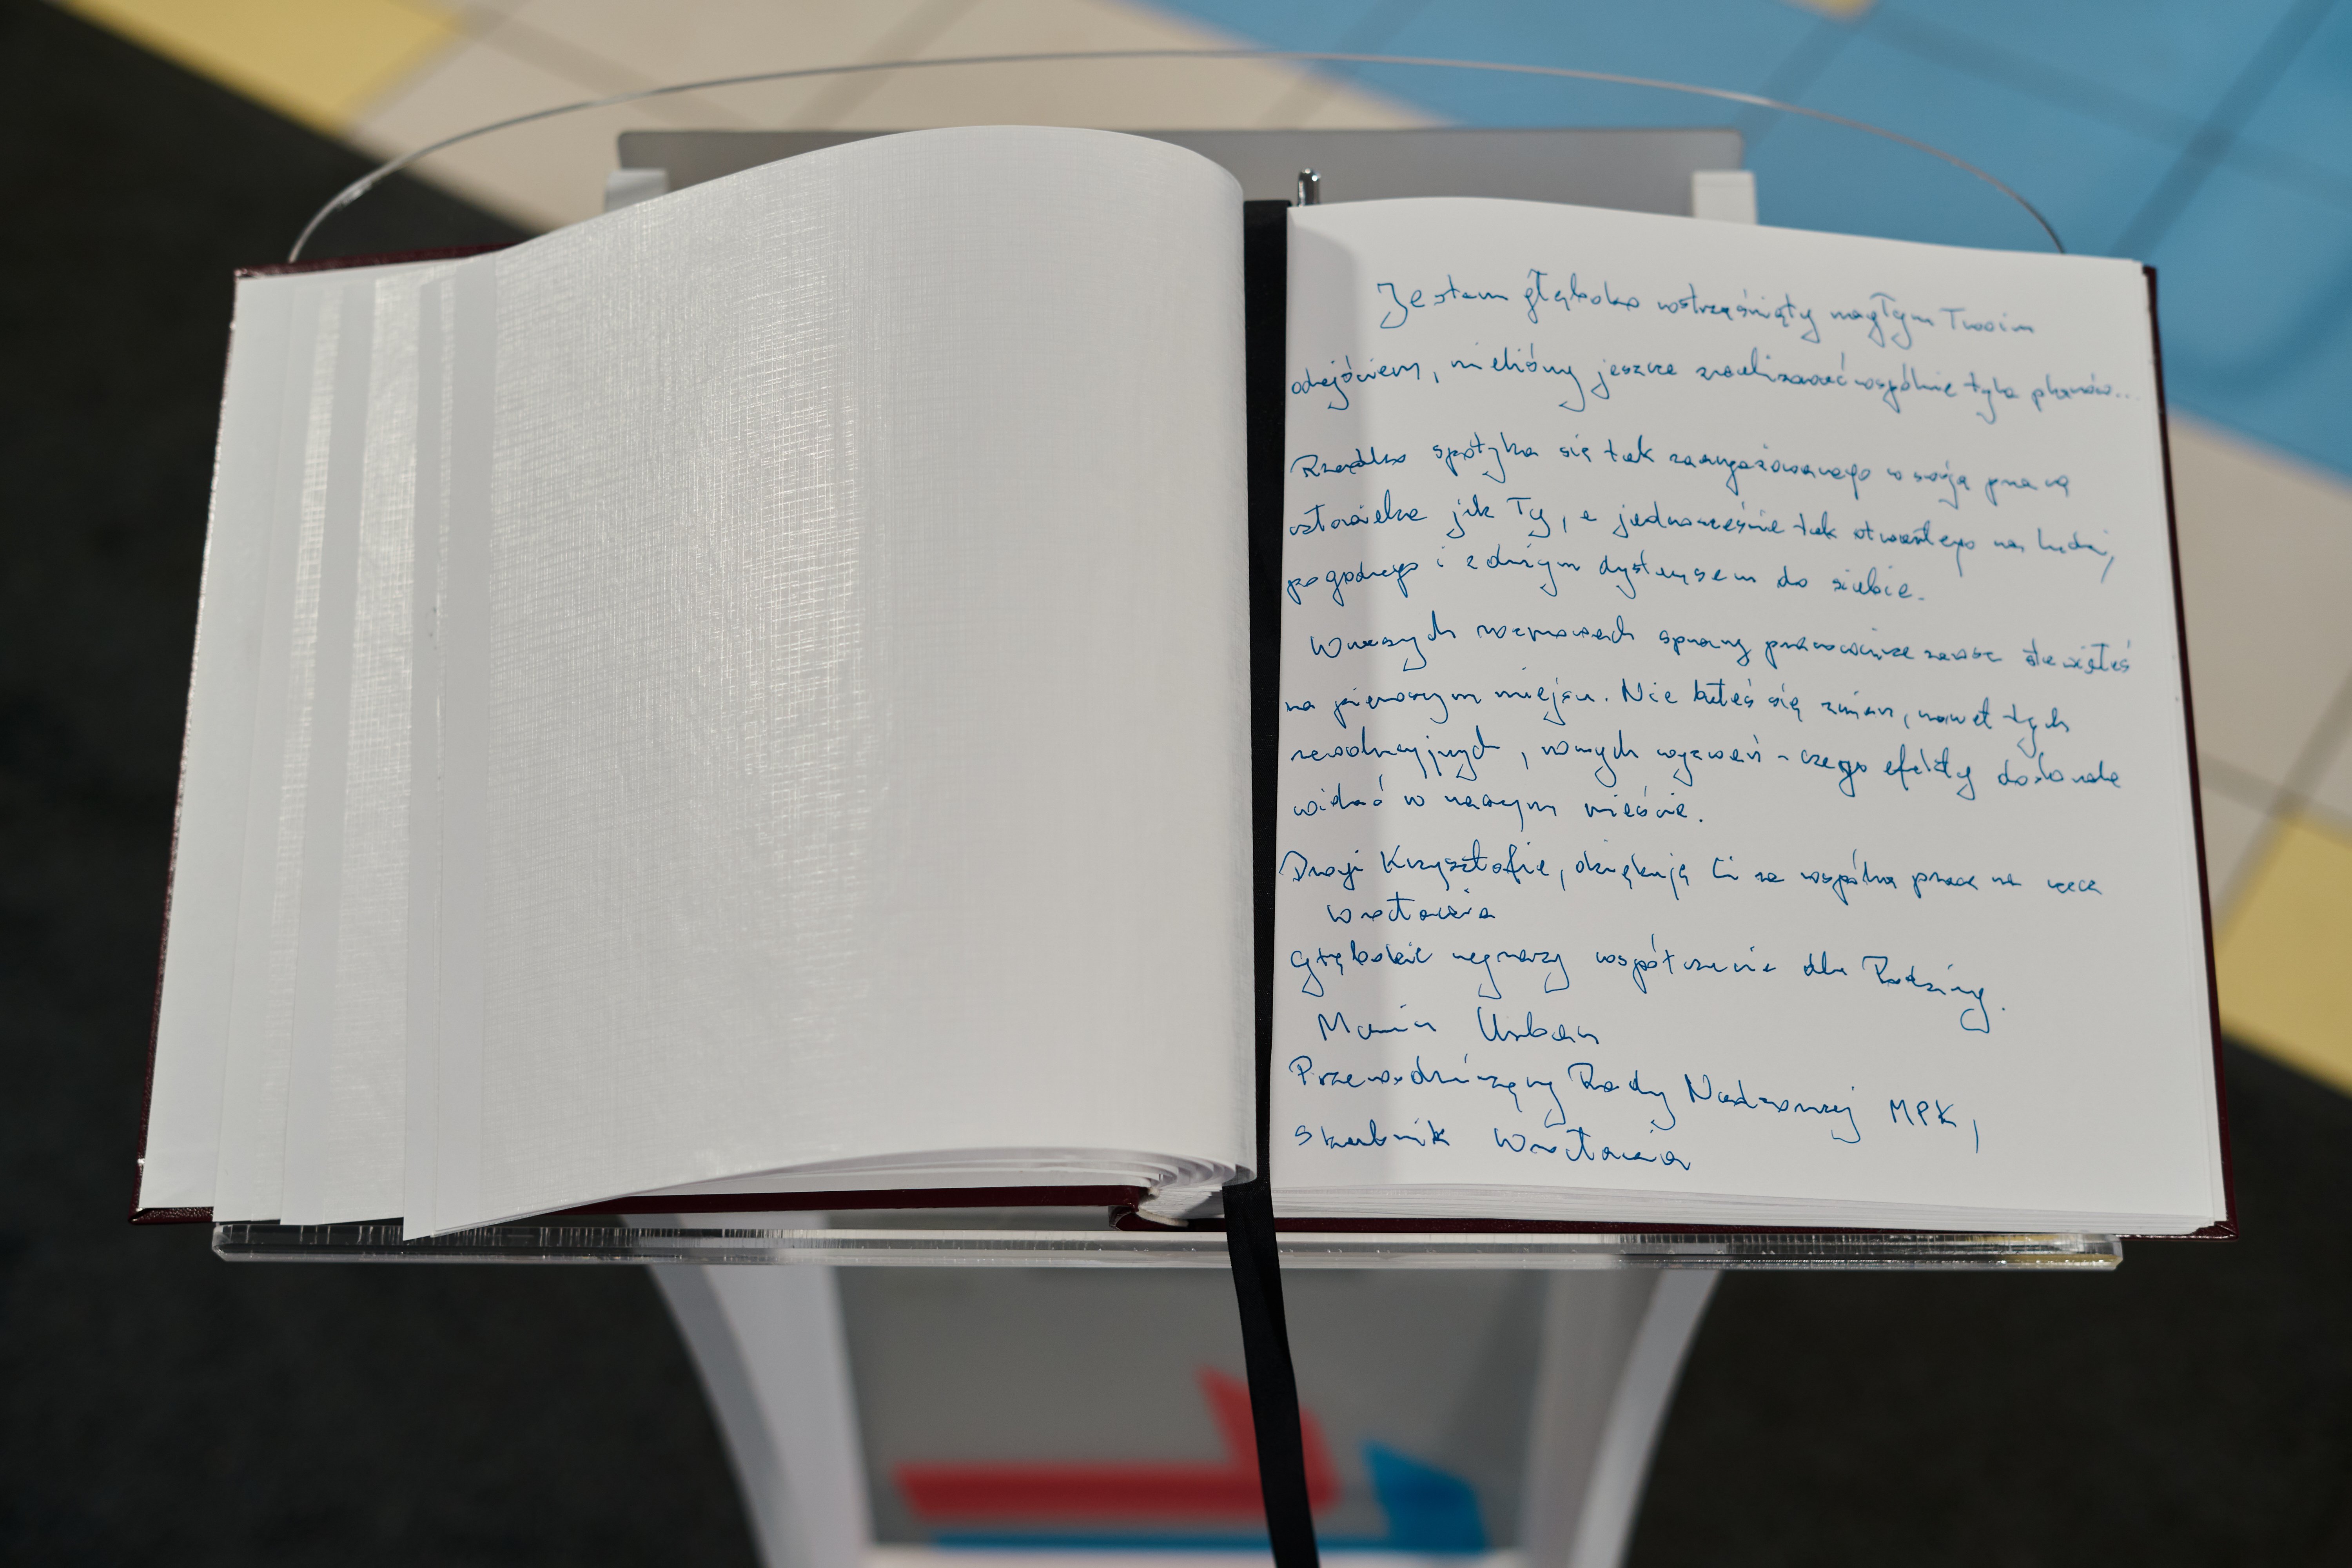 Jestem głęboko wstrząśnięty nagłym Twoim
odejściem, mieliśmy jeszcze zrealizować wspólnie tyle planów...
Rzadko spotyka się tak zaangażowanego w swoją pracę
człowieka jak Ty, a jednocześnie tak otwartego na ludzi,
pogodnego i z dużym dystansem do siebie.
W naszych rozmowach sprawy pracownicze zawsze stawiałeś
na pierwszym miejscu. Nie bałeś się zmian, nawet tych
rewolucyjnych, nowych wyzwań - czego efekty doskonale
widać w naszym mieście.
Drogi Krzysztofie, dziękuję Ci za wspólną pracę na rzecz
Wrocławia
Głębokie wyrazy współczucia dla Rodziny.
Marcin Urban
Przewodniczący Rady Nadzorczej MPK,
Skarbnik Wrocławia